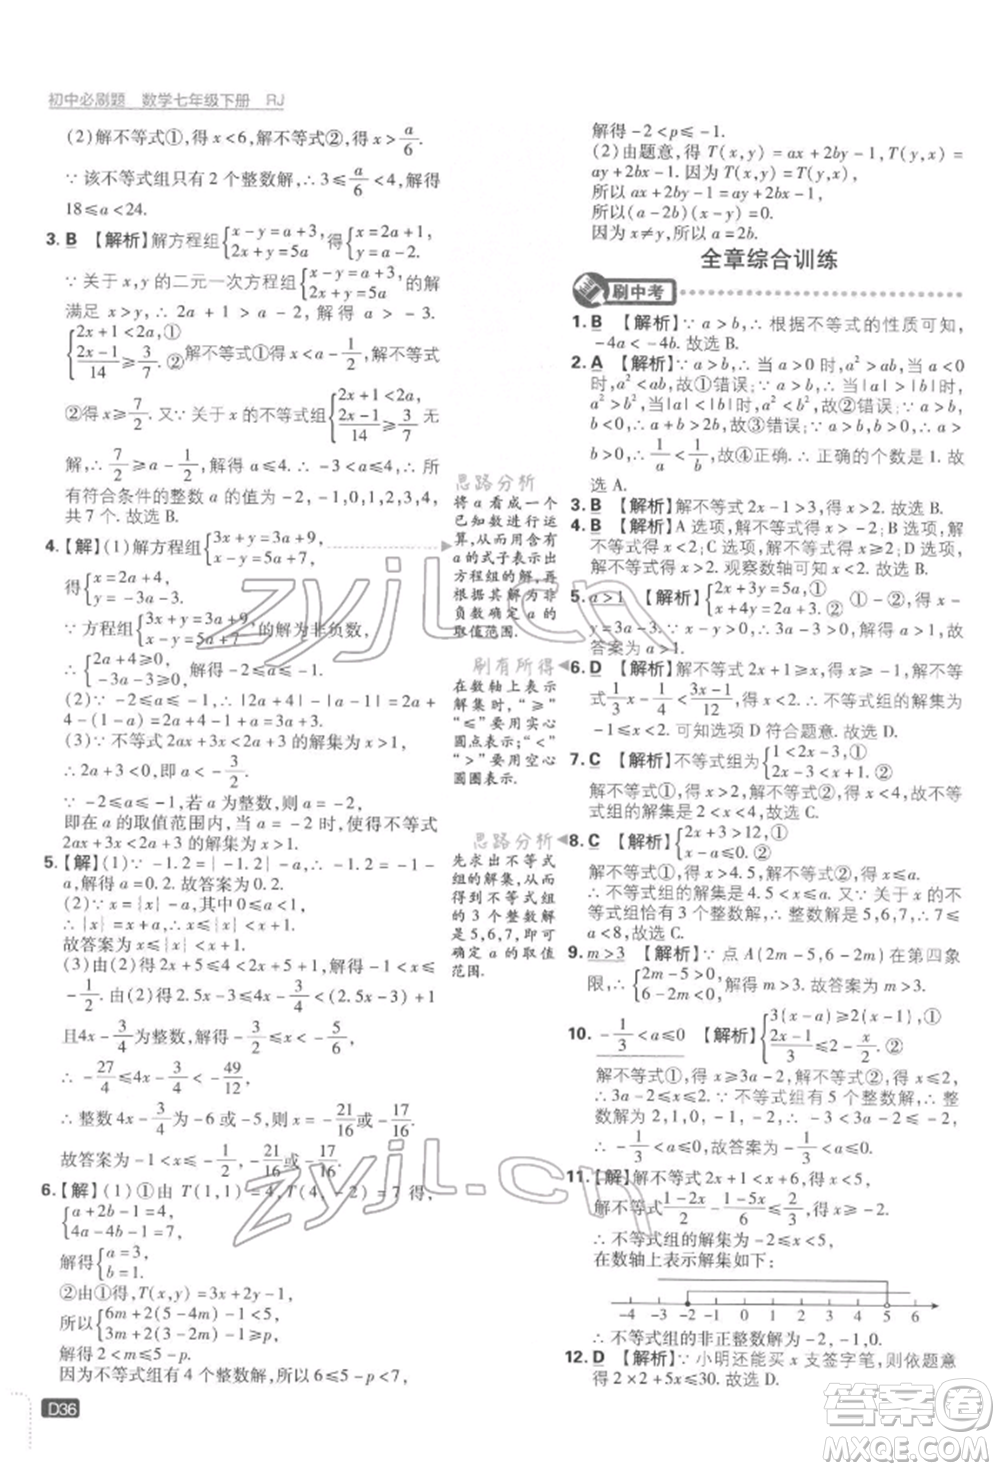 初中必刷题 数学七年级下册 RJ
(2)解不等式①,得 x<6,解不等式②,得 x>a/6.
∵ 该不等式组只有 2 个整数解,∴ 3≤a/6<4,解得
18≤a<24.
3. B 【解析】解方程组{x-y=a+3, 2x+y=5a}得{x=2a+1, y=a-2.
∵ 关于 x,y 的二元一次方程组{x-y=a+3, 2x+y=5a}的解
满足 x>y,∴ 2a+1>a-2,解得 a>-3.
{x+1<2a,① (2x-1)/14≥3/7.② 解不等式①得 x<2a-1,解不等式
②得 x≥7/2. 又∵ 关于 x 的不等式组{x+1<2a, (2x-1)/14≥3/7 无
解,∴ 7/2≥a-1/2,解得 a≤4.∴ -3<a≤4,∴ 所
有符合条件的整数 a 的值为-2,-1,0,1,2,3,4,
共 7 个. 故选 B.
4. 【解】(1)解方程组{3x+y=3a+9, x-y=5a+7,
得{x=2a+4, y=-3a-3.
∵ 方程组{3x+y=3a+9, x-y=5a+7,的解为非负数,
∴ {2a+4≥0, -3a-3≥0,解得-2≤a≤-1.
(2)∵ -2≤a≤-1,∴ |2a+4|-|a-1|=2a+
4-(-a+1)=2a+4+a-1=3a+3.
(3)∵ 不等式 2ax+3x<2a+3 的解集为 x>1,
∴ 2a+3<0,即 a<-3/2.
∵ -2≤a≤-1,且 a 为整数,则 a=-2,
即在 a 的取值范围内,当 a=-2 时,使得不等式
2ax+3x<2a+3 的解集为 x>1.
5. 【解】(1)∵ -1.2=|-1.2|+a,∴ -1.2=-2+
a,解得 a=0.8. 故答案为 0.2.
(2)∵ x=|x|+a,∴ |x|=x-a. 又∵ 0≤a<1,
∴ |x|=x+a,∴ x≤|x|<x+1.
故答案为 x≤|x|<x+1.
(3)由(2)得 2.5x-3<4x-3/4+1,解得 x≥
-1/2. 由(2)得 2.5x-3≥4x-3/4,
且 4x-3/4 为整数,解得-3/2<x≤-17/12
∴ -27/4≤4x-3/4<-49/12.
∴ 整数 4x-3/4 为-6 或-5,∴ x=-21/16 或-17/16.
故答案为 x=-1/2,-21/16 或-17/16.
6. 【解】(1)①由 T(1,1)=4,T(4,-2)=7 得,
{a+2b-1=4, 4a-4b-1=7,
解得{a=3, b=1.
②由①得,T(x,y)=3x+2y-1,
所以{6m+2(5-4m)-1<5, 3m+2(3-2m)-1≥p,
解得 2<m≤5-p.
因为不等式组有 4 个整数解,所以 6≤5-p<7,
思路分析
将 a 看成一个
已知数进行运
算,从而用含有
a 的式子表示出
方程组的解,再
根据其解为非
负数确定 a 的
取值范围.
刷有所得
在数轴上表示
解集时,“≥”
“≤”要用实心
圆点表示;“<”
“>”要用空心
圆圈表示.
思路分析
先求出不等式
组的解集,然后
得到不等式组
的 3 个整数解
为5,6,7,即可
确定 a 的取值
范围.
解得-2<p≤-1.
(2)由题意,得 T(x,y)=ax+2by-1,T(y,x)=
ay+2bx-1. 因为 T(x,y)=T(y,x),
所以 ax+2by-1=ay+2bx-1,
所以(a-2b)(x-y)=0.
因为 x≠y,所以 a=2b.
全章综合训练
刷中考
1. B 【解析】∵ a>b,∴ 根据不等式的性质可知,
-4a<-4b. 故选 B.
2. A 【解析】∵ a>b,∴ 当 a>0 时,a²>ab,当 a<0
时,a²<ab,故①错误;∵ a>b,∴ 当|a|>|b|时,
a²>b²,当|a|<|b|时,a²<b²,故②错误;∵ a>b,若
b<0,∴ a+b<a,故③错误;∴ 正确的个数是 1. 故
选 A.
3. B 【解析】解不等式 2x-1>3,得 x>2. 故选 B.
4. B 【解析】A 选项,解不等式得 x>-2;B 选项,解
不等式得 x<2;C 选项,解不等式得 x≥2;D 选项,解
不等式得 x>2. 观察数轴可知 x<2. 故选 B.
5. a>1 【解析】{2x+3y=5a,① x+4y=2a+3.② ①-②,得 x-y
=3a-3. ∵ x>y,∴ x-y>0,∴ 3a-3>0,解得 a>1. 故
答案为 a>1.
6. D 【解析】解不等式 2x+1≥x,得 x≥-1,解不等
式 1/3 x-1/4<(3x-1)/12,得 x<2. ∴ 不等式组的解集为
-1≤x<2. 可知选项 D 符合题意. 故选 D.
7. C 【解析】不等式组为{1<2x-3,① 2x-3<x+1.②
解不等式①,得 x>2,解不等式②,得 x<4,∴ 不等
式组的解集是 2<x<4. 故选 C.
8. C 【解析】{2x+3>12,① x-a≤0.②
解不等式①,得 x>4.5,解不等式②,得 x≤a,
∴ 不等式组的解集是 4.5<x≤a. 又∵ 关于 x 的不
等式组恰有 3 个整数解,整数解为 5,6,7,∴ 7≤
a<8,故选 C.
9. m>3 【解析】∵ 点 A(2m-5,6-2m)在第四象
限,∴ {2m-5>0, 6-2m<0,解得 m>3. 故答案为 m>3.
10. -1/3<a≤0 【解析】{3(x-a)≥2(x-1),① (2x-1)/3≤2-x/2.②
解不等式①,得 x≥3a-2,解不等式②,得 x≤2,
∴ 解集为 3a-2≤x≤2. ∵ 不等式有 5 个整数解,∴ 整
数解为 2,1,0,-1,-2,∴ -3<3a-2≤-2,
∴ -1/3<a≤0,故答案为-1/3<a≤0.
11. 【解】解不等式 2x+1>x-1,得 x>-2,
解不等式 (1-2x)/2-(1-5x)/6≥-2/3,得 x≤5.
∴ 不等式组的解集为-2<x≤5,
在数轴上表示解集如下:
-4 -3 -2 -1 0 1 2 3 4 5 6
∴ 不等式组的非正整数解为-1,0.
12. D 【解析】∵ 小明还能买 x 支签字笔,则依题意
得 2×2+5x≤30. 故选 D.
D36
zyjl.cn
zyjl.cn
答案圈
MXQE.COM